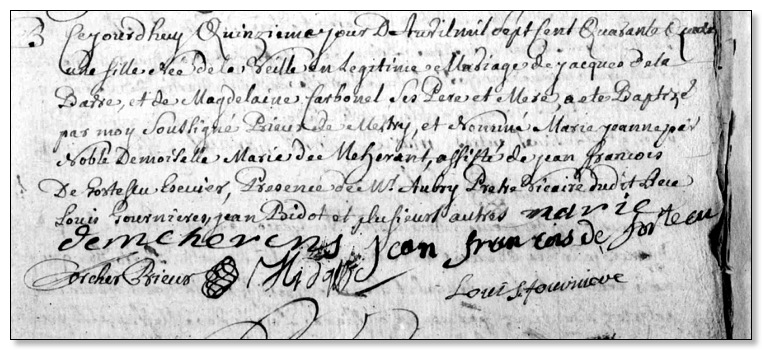 B Cejourdhuy Quinzieme jour De Avril mil sept cent Quarante Quatre
une fille née de la veille en legitime Mariage de jacques dela
Barre, et de Magdelaine Carbonel Ses Pere et Mere, a ete Baptizé
par moy Soussigné Prieur de Mestry, et nommé Marie jeanne par
Noble Demoiselle Marie de Meherent, assisté de jean francois
De fortescu Ecuier, Presence de Mr Aubry Pretre vicaire dudit lieu
Louis fournieres, jean Bidot et plusieurs autres marie
demeherens jean francois de fortecu
Prieur
Louis fourniere